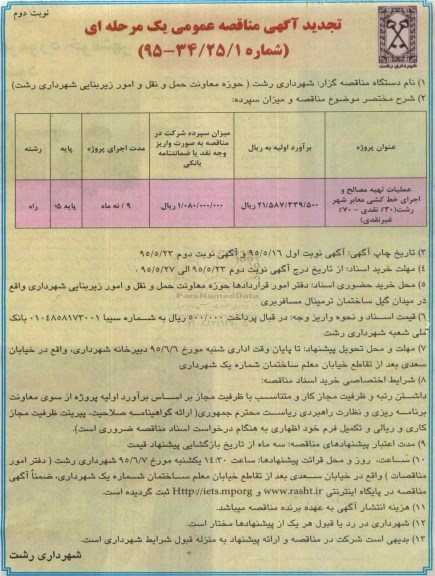 نوبت دوم
تجدید آگهی مناقصه عمومی یک مرحله ای
(شماره ۹۵-۳۴/۲۵/۱)
شهرداری رشت
۱) نام دستگاه مناقصه گزار: شهرداری رشت ( حوزه معاونت حمل و نقل و امور زیربنایی شهرداری رشت)
۲) شرح مختصر موضوع مناقصه و میزان سپرده:
عنوان پروژه
برآورد اولیه به ریال
میزان سپرده شرکت در مناقصه به صورت واریز وجه نقد یا ضمانتنامه بانکی
مدت اجرای پروژه
پایه
رشته
عملیات تهیه مصالح و اجرای خط کشی معابر شهر رشت(۳۰٪ نقدی - ۷۰٪ غیرنقدی)
۲۱/۵۸۷/۳۳۹/۵۰۰ ریال
۱/۰۸۰/۰۰۰/۰۰۰ ریال
۹ / نه ماه
پایه ۵
راه
۳) تاریخ چاپ آگهی: آگهی نوبت اول ۹۵/۵/۱۶ و آگهی نوبت دوم ۹۵/۵/۲۳
۴) مهلت خرید اسناد: از تاریخ درج آگهی نوبت دوم ۹۵/۵/۲۳ الی ۹۵/۵/۲۷ .
۵) محل خرید حضوری اسناد: دفتر امور قراردادها حوزه معاونت حمل و نقل و امور زیربنایی شهرداری واقع
در میدان گیل ساختمان ترمینال مسافربری
۶) قیمت اسناد و نحوه واریز وجه: در قبال پرداخت ۵۰۰/۰۰۰ ریال به شماره سیبا ۰۱۰۴۸۵۸۱۷۳۰۰۱ بانک
ملی شعبه شهرداری رشت
۷) مهلت و محل تحویل پیشنهاد: تا پایان وقت اداری شنبه مورخ ۹۵/۶/۶ دبیرخانه شهرداری، واقع در خیابان
سعدی بعد از تقاطع خیابان معلم ساختمان شماره یک شهرداری
۸) شرایط اختصاصی خرید اسناد مناقصه:
داشتن رتبه و ظرفیت مجاز کار و متناسب با ظرفیت مجاز بر اساس برآورد اولیه پروژه از سوی معاونت
برنامه ریزی و نظارت راهبردی ریاست محترم جمهوری( ارائه گواهینامه صلاحیت، پیرینت ظرفیت مجاز
کاری و ریالی و تکمیل فرم خود اظهاری به هنگام درخواست اسناد مناقصه ضروری است).
۹) مدت اعتبار پیشنهادهای مناقصه: سه ماه از تاریخ بازگشایی پیشنهاد قیمت
۱۰) ساعت، روز و محل قرائت پیشنهادها: ساعت ۱۴:۳۰ یکشنبه مورخ ۹۵/۶/۷ شهرداری رشت ( دفتر امور
مناقصات ) واقع در خیابان سعدی بعد از تقاطع خیابان معلم ساختمان شماره یک شهرداری، ضمناً آگهی
مناقصه در پایگاه اینترنتی www.rasht.ir و Http://iets.mporg ثبت گردیده است.
۱۱) هزینه انتشار آگهی به عهده برنده مناقصه میباشد.
۱۲) شهرداری در رد یا قبول هر یک از پیشنهادها مختار است.
۱۳) بدیهی است شرکت در مناقصه و ارائه پیشنهاد به منزله قبول شرایط شهرداری است.
شهرداری رشت